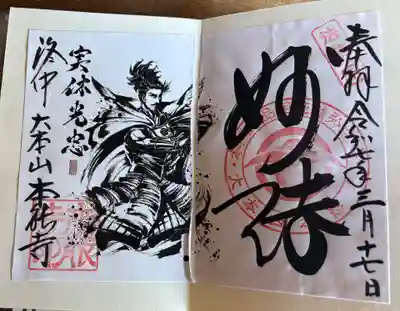 奉拝 令和七年三月十七日
妙法
実休光忠
洛中 大本山本能寺